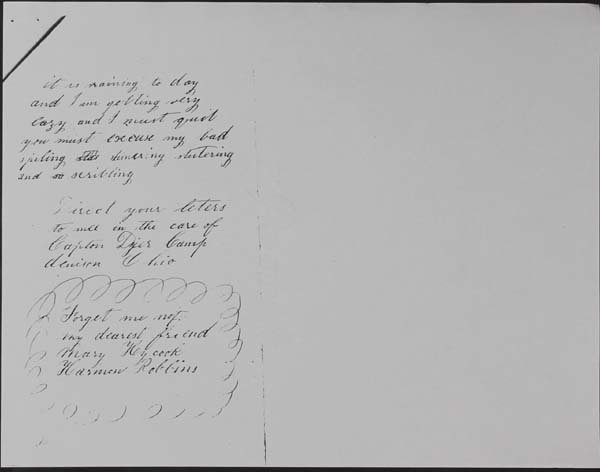 it is raining to day
and I am getting very
lazy and I must quit
you must excuse my bad
spiling stutering
and scribling
Direct your leters
to mee in the care of
Capton Djer Camp
denison Ohio
Forget me not
my dearest friend
Mary Hycook
Harmon Robbins